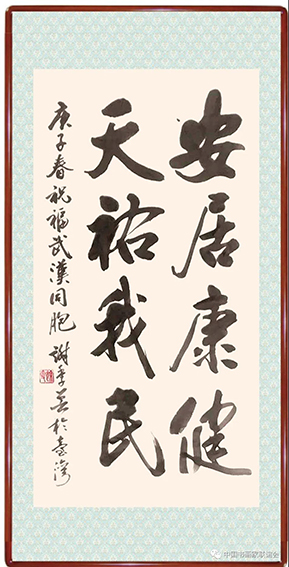 安居康健
天祐我民
庚子春祝福武漢同胞 謝季芸於臺灣
中国书画家联谊会